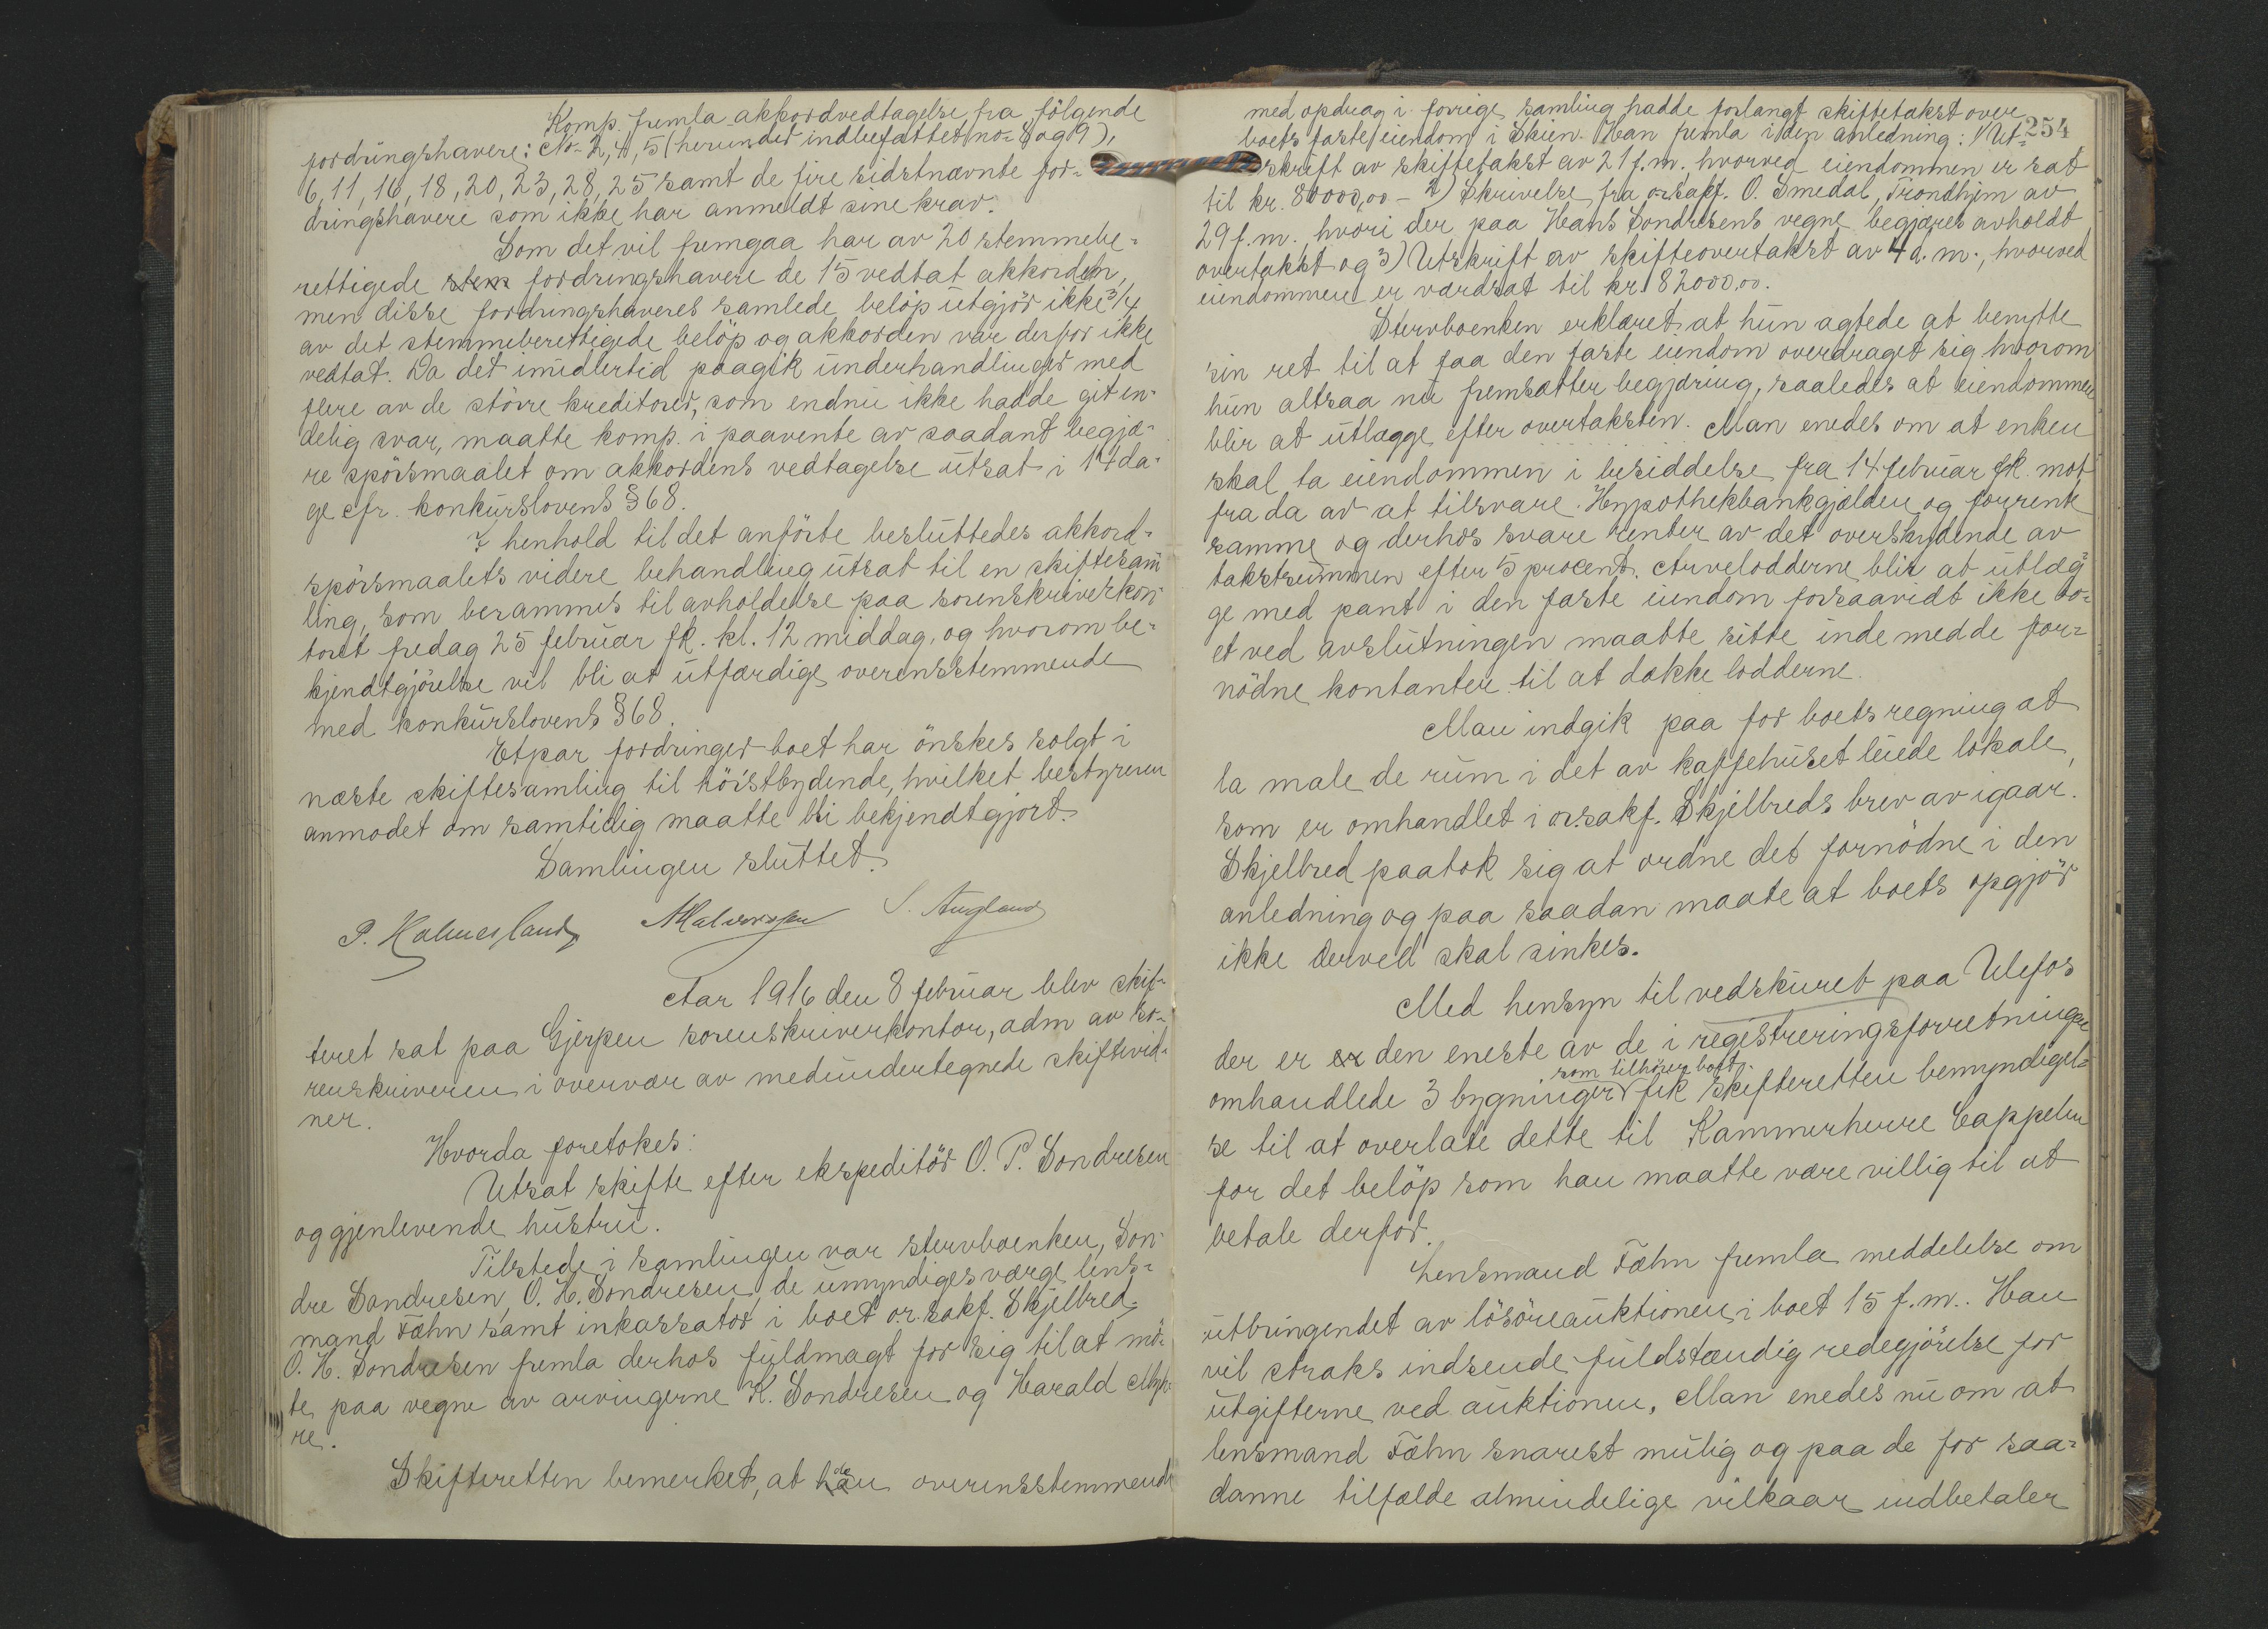 Komp. fremla akkordvedtagelse fra følgende
fordringshavere: No- 2, 4, 5 (herunder indbefattet no- 8 og 9),
6, 11, 16, 18, 20, 23, 28, 25 samt de fire sidstnævnte for-
dringshavere som ikke har anmeldt sine krav.
Som det vil fremgaa har av 20 stemmebe-
rettigede fordringshavere de 15 vedtat akkorden,
men disse fordringshaveres samlede beløp utgjør ikke 3/4
av det stemmeberettigede beløp og akkorden var derfor ikke
vedtat. Da det imidlertid paagik underhandlinger med
flere av de større kreditorer, som endnu ikke hadde git en-
delig svar, maatte komp. i paavente av saadant begjæ-
re spørsmaalet om akkordens vedtagelse utsat i 14 da-
ge cfr. konkurslovens § 68.
I henhold til det anførte besluttedes akkord-
spørsmaalets videre behandling utsat til en skiftesam-
ling, som berammes til avholdelse paa sorenskriverkon-
toret fredag 25 februar fk. kl. 12 middag, og hvorom be-
kjendtgjørelse vil bli at utfærdige overensstemmende
med konkurslovens § 68.
Et par fordringer boet har ønskes solgt i
næste skiftesamling til høistbydende, hvilket bestyreren
anmodet om samtidig maatte bli bekjendtgjort.
Samlingen sluttet.
P. Holmesland
Aar 1916 den 8 februar blev skif-
teret sat paa Gjerpen sorenskriverkontor, adm av so-
renskriveren i overvær av medundertegnede skiftevid-
ner.
Hvorda foretokes:
Utsat skifte efter ekspeditør O. P. Sondresen
og gjenlevende hustru.
Tilstede i samlingen var stervboenken, Son-
dre Sondresen, O. H. Sondresen, de umyndiges værge lens-
mand Fæhn samt inkassator i boet o.r.sakf. Skjelbred.
O. H. Sondresen fremla derhos fuldmagt for sig til at mø-
te paa vegne av arvingerne K. Sondresen og Harald Myh-
re.
Skifteretten bemerket, at overensstemmende
254
med opdrag i forrige samling hadde forlangt skiftetakst over
boets faste eiendom i Skien. Han fremla i den anledning: 1) Ut-
skrift av skiftetakst av 21 f.m., hvorved eiendommen er sat
til kr. 80000,00 - 2) Skrivelse fra o.r.sakf. O. Smedal, Trondhjem av
29 f.m. hvori der paa Hans Sondresens vegne begjæres avholdt
overtakst og 3) Utskrift av skifteovertakst av 4 d.m., hvorved
eiendommen er værdsat til kr. 82000,00.
Stervboenken erklæret at hun agtede at benytte
sin ret til at faa den faste eiendom overdraget sig hvorom
hun altsaa nu fremsætter begjæring, saaledes at eiendommen
blir at utlægge efter overtaksten. Man enedes om at enken
skal ta eiendommen i besiddelse fra 14 februar fk. mot
fra da av at tilsvare Hypothekbankgjælden og forrente
samme og derhos svare renter av det overskydende av
takstsummen efter 5 procent. Arvelodderne blir at utlæg-
ge med pant i den faste eiendom forsaavidt ikke bo-
et ved avslutningen maatte sitte inde med de for-
nødne kontanter til at dække lodderne.
Man indgik paa for boets regning at
la male de rum i det av kaffehuset leiede lokale,
som er omhandlet i o.r.sakf. Skjelbreds brev av igaar.
Skjelbred paatok sig at ordne det fornødne i den
anledning og paa saadan maate at boets opgjør
ikke derved skal sinkes.
Med hensyn til vedskuret paa Ulefos
der er den eneste av de i registreringsforretningen
omhandlede 3 bygninger som tilhører boet fik skifteretten bemyndigel-
se til at overlate dette til Kammerherre Cappelen
for det beløp som han maatte være villig til at
betale derfor.
Lensmand Fæhn fremla meddelelse om
utbringendet av løsøreauktionen i boet 15 f.m.. Han
vil straks indsende fuldstændig redegjørelse for
utgifterne ved auktionen. Man enedes nu om at
lensmand Fæhn snarest mulig og paa de for saa-
danne tilfælde almindelige vilkaar indbetaler